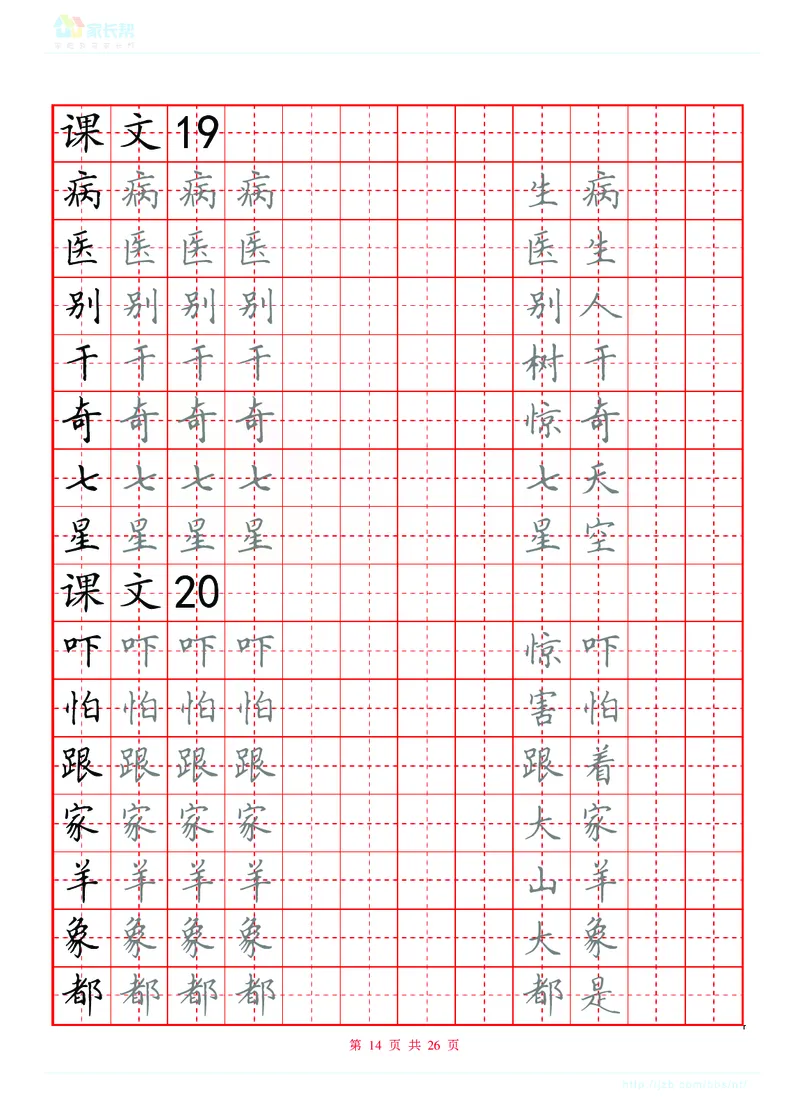 家长帮
课文19
病病病病 生病
医医医医 医生
别别别别 别人
干干干干 树干
奇奇奇奇 惊奇
七七七七 七天
星星星星 星空
课文20
吓吓吓吓 惊吓
怕怕怕怕 害怕
跟跟跟跟 跟着
家家家家 大家
羊羊羊羊 山羊
象象象象 大象
都都都都 都是
第 14 页 共 26 页